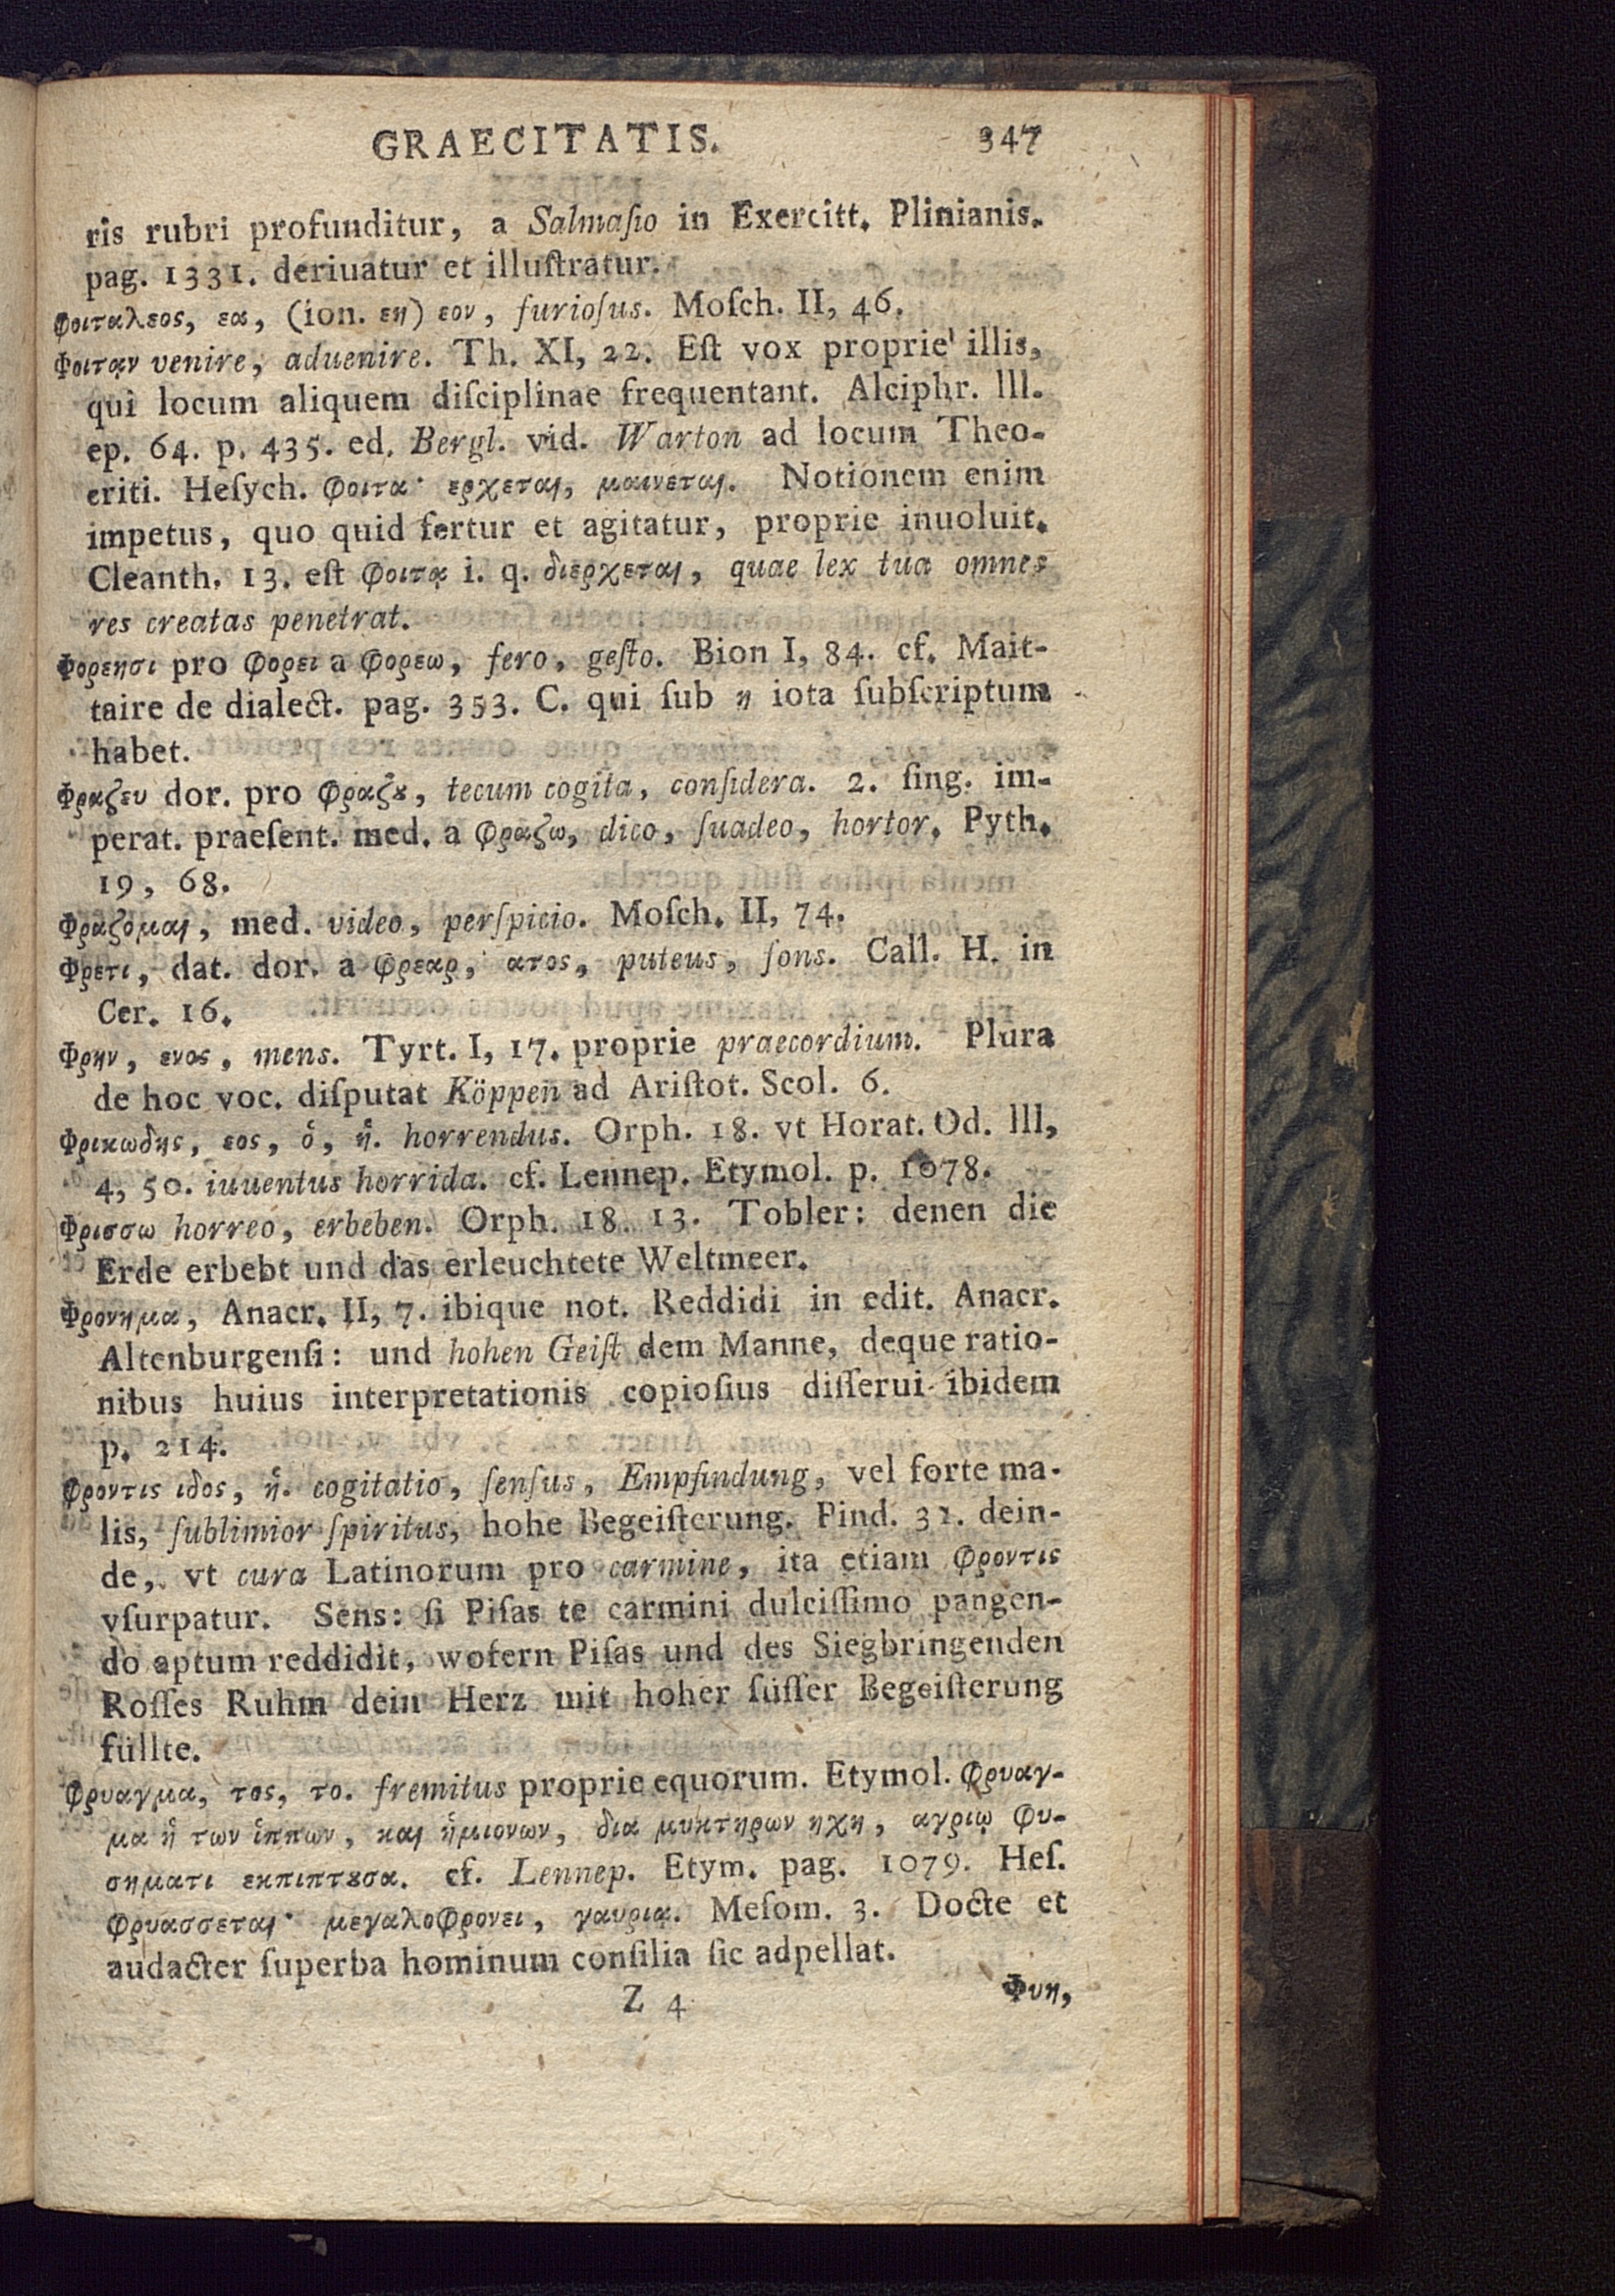 GRAECITATIS. 347
ris rubri profunditur, a Salmaſio in Exercitt. Plinianis.
pag. 1331. deriuatur et illuſtratur.
Φοιταλεος, εα, (ion. εη) εον, furioſus. Moſch. II, 46.
Φοιτᾳν venire, aduenire. Th. XI, 22. Eſt vox proprie illis,
qui locum aliquem diſciplinae frequentant. Alciphr. lll.
ep. 64. p. 435. ed. Bergl. vid. Warton ad locum Theo-
criti. Heſych. φοιτα· ερχεται, μαινεται. Notionem enim
impetus, quo quid fertur et agitatur, proprie inuoluit.
Cleanth. 13. eſt φοιτᾳ i. q. διερχεται, quae lex tua omnes
res creatas penetrat.
Φορεησι pro φορει a φορεω, fero, geſto. Bion I, 84. cf. Mait-
taire de dialect. pag. 353. C. qui ſub η iota ſubſcriptum
habet.
Φραζευ dor. pro φραζȣ, tecum cogita, conſidera. 2. ſing. im-
perat. praeſent. med. a φραζω, dico, ſuadeo, hortor. Pyth.
19, 68.
Φραζομαι, med. video, perſpicio. Moſch. II, 74.
Φρετι, dat. dor. a φρεαρ, ατος, puteus, fons. Call. H. in
Cer. 16.
Φρην, ενος, mens. Tyrt. I, 17. proprie praecordium. Plura
de hoc voc. diſputat Köppen ad Ariſtot. Scol. 6.
Φρικωδης, εος, ὁ, ἡ. horrendus. Orph. 18. vt Horat. Od. lll,
4, 50. iuuentus horrida. cf. Lennep. Etymol. p. 1078.
Φρισσω horreo, erbeben. Orph. 18. 13. Tobler: denen die
Erde erbebt und das erleuchtete Weltmeer.
Φρονημα, Anacr. II, 7. ibique not. Reddidi in edit. Anacr.
Altenburgenſi: und hohen Geiſt dem Manne, deque ratio-
nibus huius interpretationis copioſius diſſerui ibidem
p. 214.
Φροντις ιδος, ἡ. cogitatio, ſenſus, Empfindung, vel forte ma-
lis, ſublimior ſpiritus, hohe Begeiſterung. Pind. 31. dein-
de, vt cura Latinorum pro carmine, ita etiam φροντις
vſurpatur. Sens: ſi Piſas te carmini dulciſſimo pangen-
do aptum reddidit, wofern Piſas und des Siegbringenden
Roſſes Ruhm dein Herz mit hoher ſüſſer Begeiſterung
füllte.
Φρυαγμα, τος, το. fremitus proprie equorum. Etymol. Φρυαγ-
μα ἡ των ἱππων, και ἡμιονων, δια μυκτηρων ηχη, αγριῳ φυ-
σηματι εκπιπτȣσα. cf. Lennep. Etym. pag. 1079. Heſ.
φρυασσεται· μεγαλοφρονει, γαυριᾳ. Meſom. 3. Docte et
audacter ſuperba hominum conſilia ſic adpellat.
Z 4 Φυη,